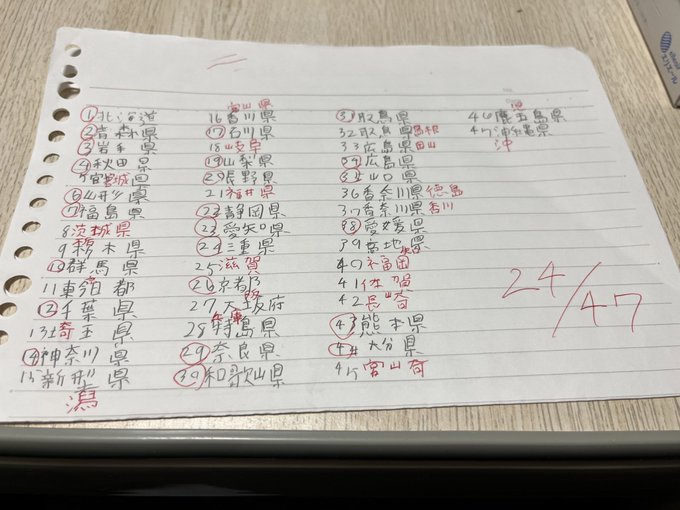 富山県
①北海道
②青森県
③岩手県
④秋田県
5宮城県
⑥山形県
⑦福島県
8茨城県
9栃木県
⑩群馬県
11東京都
⑫千葉県
13埼玉県
⑭神奈川県
15新潟県
潟
16香川県
⑰石川県
18岐阜
⑲山梨県
⑳長野県
21福井県
㉒静岡県
㉓愛知県
㉔三重県
25滋賀
㉖京都
27大阪府
阪
兵庫
28特島県
㉙奈良県
㉚和歌山県
㉛取鳥県
32取鳥県島根
33広島県岡山
㉞広島県
㉟山口県
36香奈川県徳島
37香奈川県香川
㊳愛媛県
39高地県
知
40福岡
41佐賀
42長崎
㊸熊本県
㊹大分県
45宮山奇
46鹿五島県
児
47沖縄県
沖
24/47